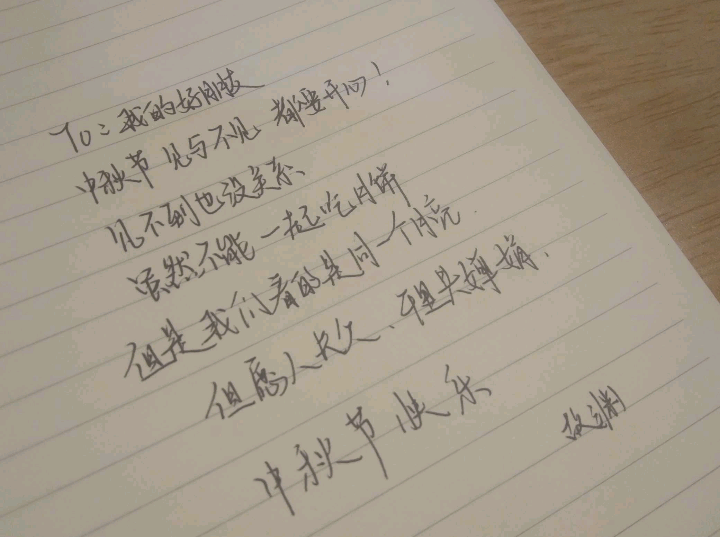 To:我的好朋友
中秋节 见与不见 都要开心!
见不到也没关系
虽然不能一起吃月饼
但是我们看的是同一个月亮.
但愿人长久、千里共婵娟.
中秋节快乐